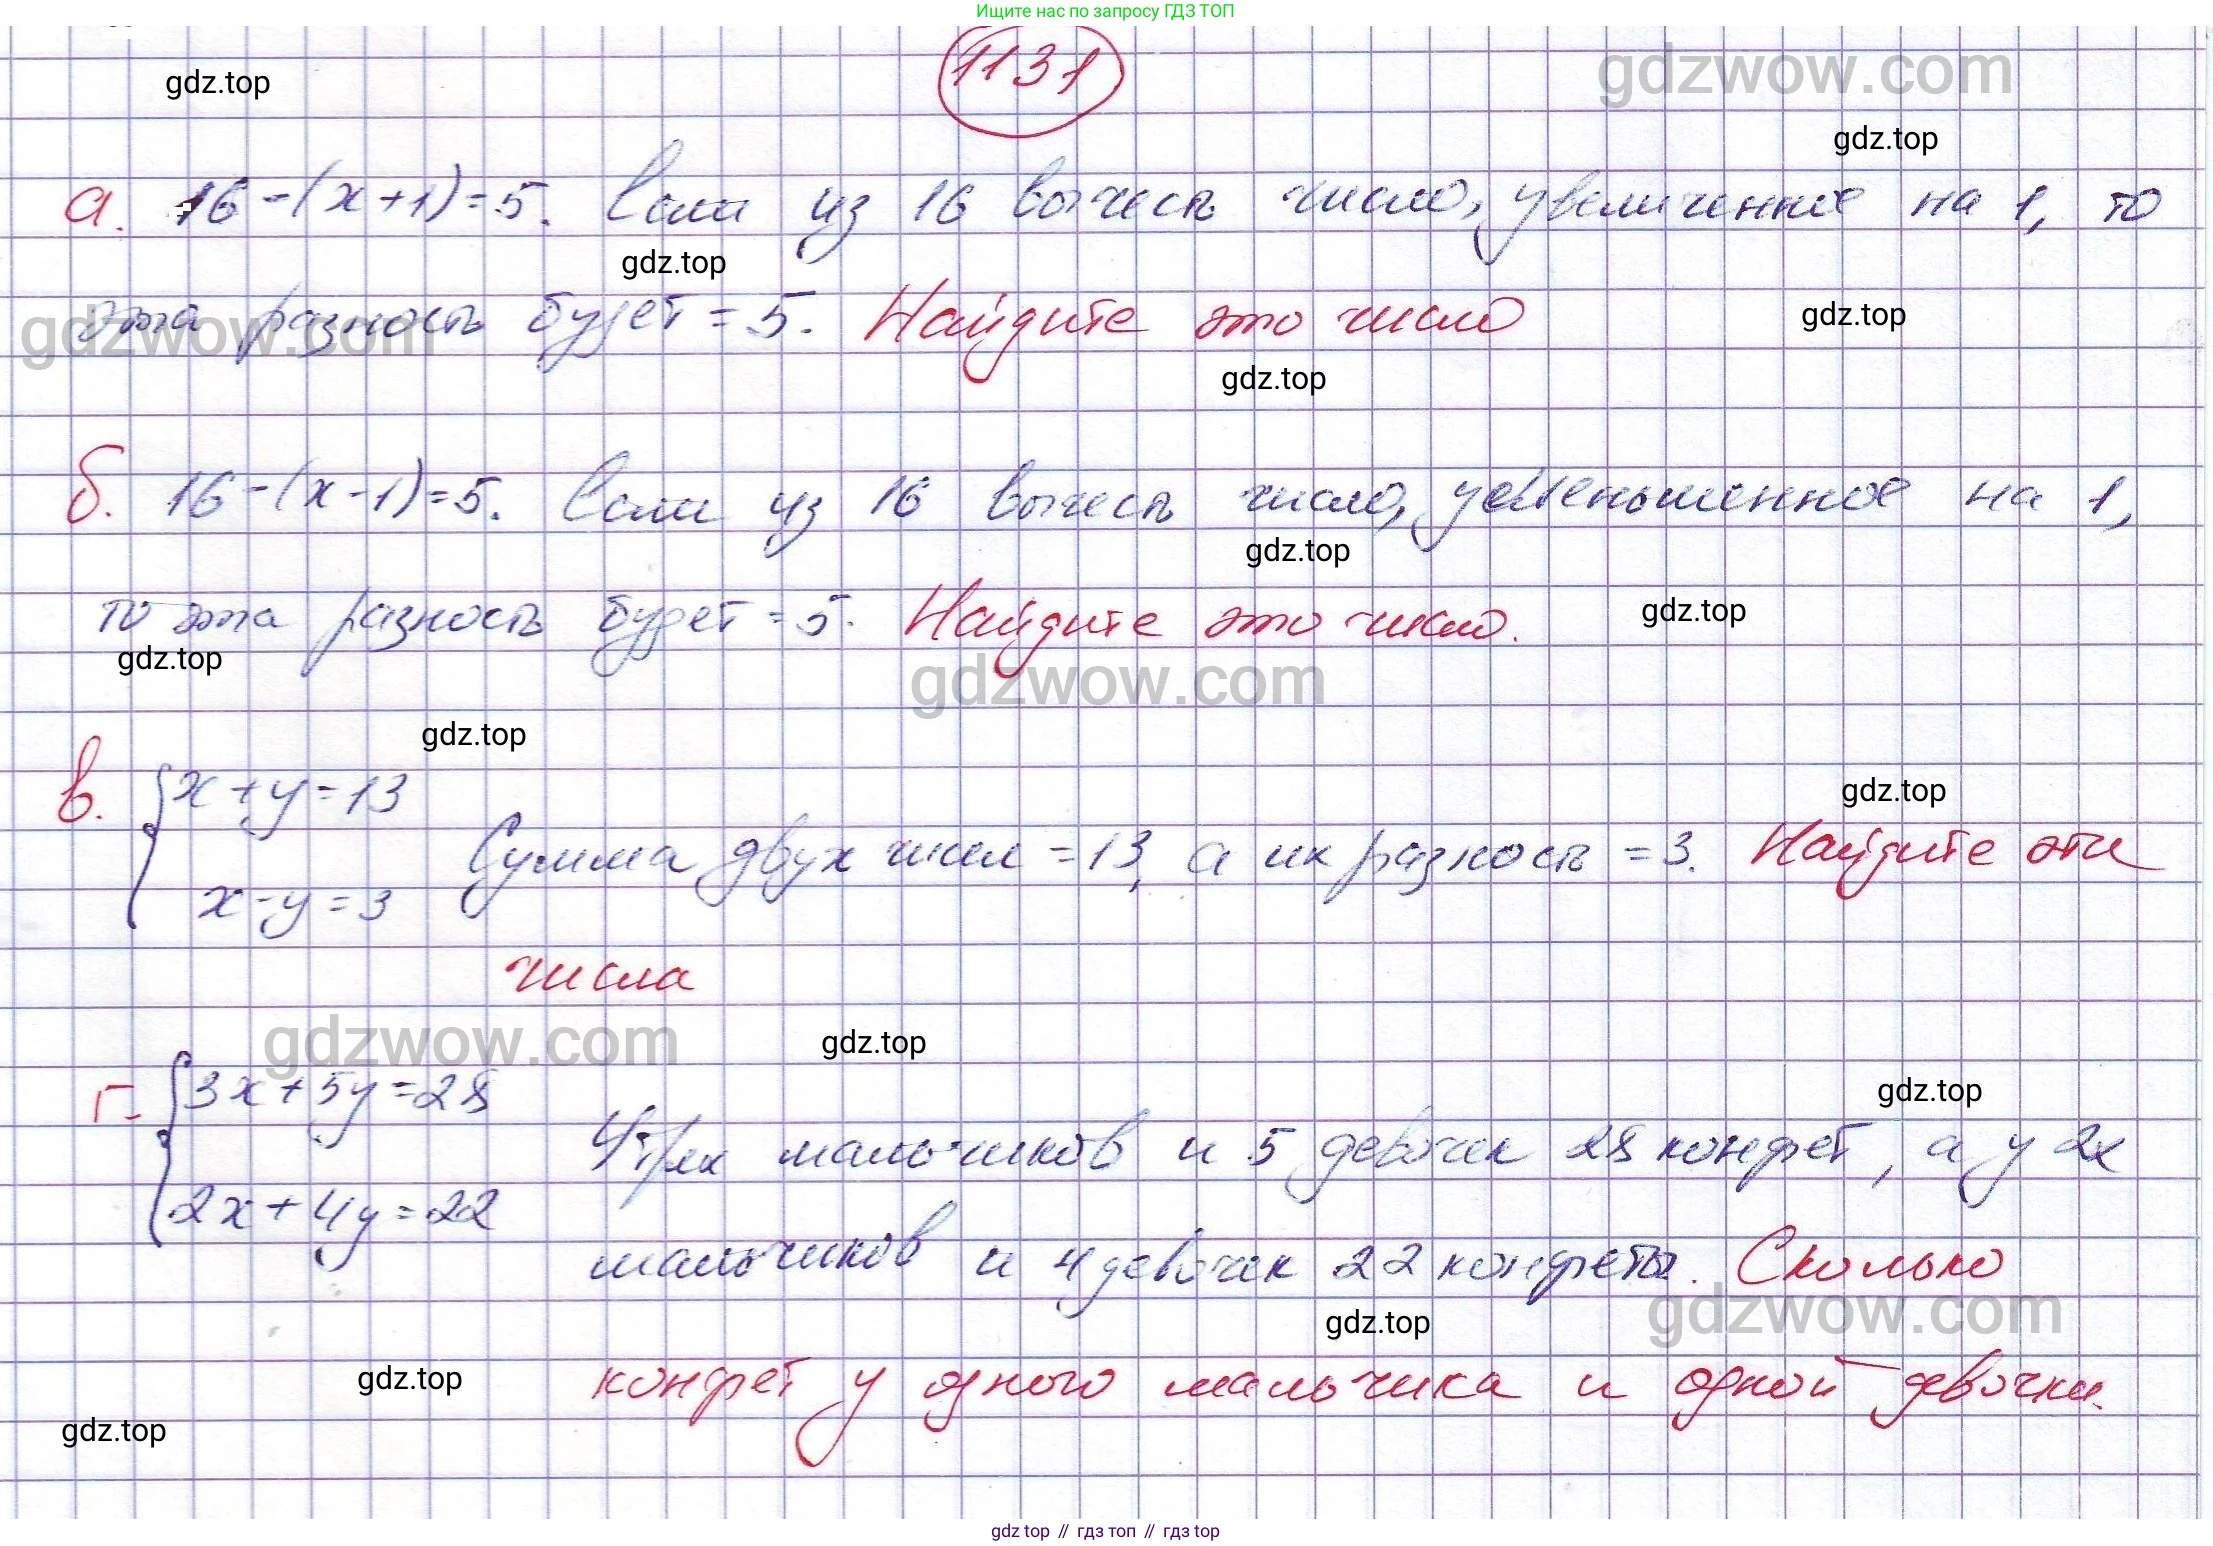 Ищите нас по запросу ГДЗ ТОП
1131
gdzwow.com
gdz.top
gdz.top
а. 16-(x+1)=5. Если из 16 вычесть число, увеличенное на 1, то
gdz.top
эта разность будет =5. Найдите это число
gdz.top
gdzwow.com
gdz.top
б. 16-(x-1)=5. Если из 16 вычесть число, уменьшенное на 1,
gdz.top
то эта разность будет =5. Найдите это число.
gdz.top
gdz.top
gdzwow.com
gdz.top
в. { x+y=13
gdz.top
Сумма двух чисел =13, а их разность =3. Найдите эти
x-y=3
числа
gdzwow.com
gdz.top
г. { 3x+5y=28
gdz.top
У трёх мальчиков и 5 девочек 28 конфет, а у 2х
2x+4y=22
мальчиков и 4 девочек 22 конфеты. Сколько
gdzwow.com
gdz.top
конфет у одного мальчика и одной девочки.
gdz.top
gdz.top
gdz top // гдз топ // gdz top